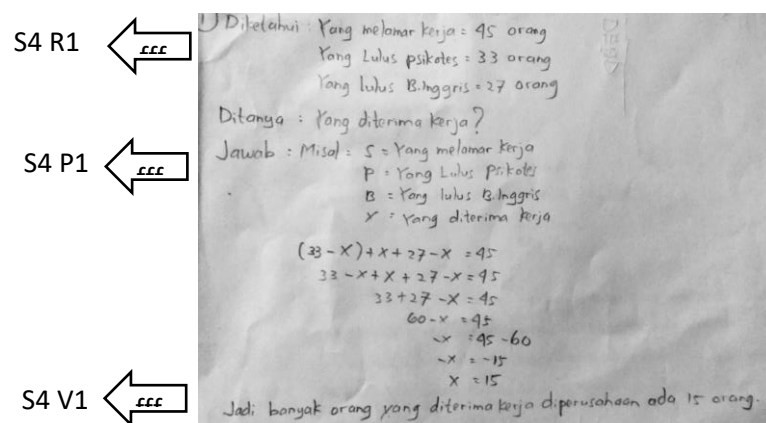 S4 R1
£££
1) Diketahui : Yang melamar kerja = 45 orang
Yang Lulus psikotes = 33 orang
Yang lulus B.Inggris = 27 orang
Ditanya : Yang diterima kerja?
S4 P1
£££
Jawab : Misal : S = Yang melamar kerja
P = Yang Lulus Psikotes
B = Yang lulus B.Inggris
X = Yang diterima kerja
(33 - X) + X + 27 - X = 45
33 - X + X + 27 - X = 45
33 + 27 - X = 45
60 - X = 45
-X = 45 - 60
-X = -15
X = 15
S4 V1
£££
Jadi banyak orang yang diterima kerja diperusahaan ada 15 orang.